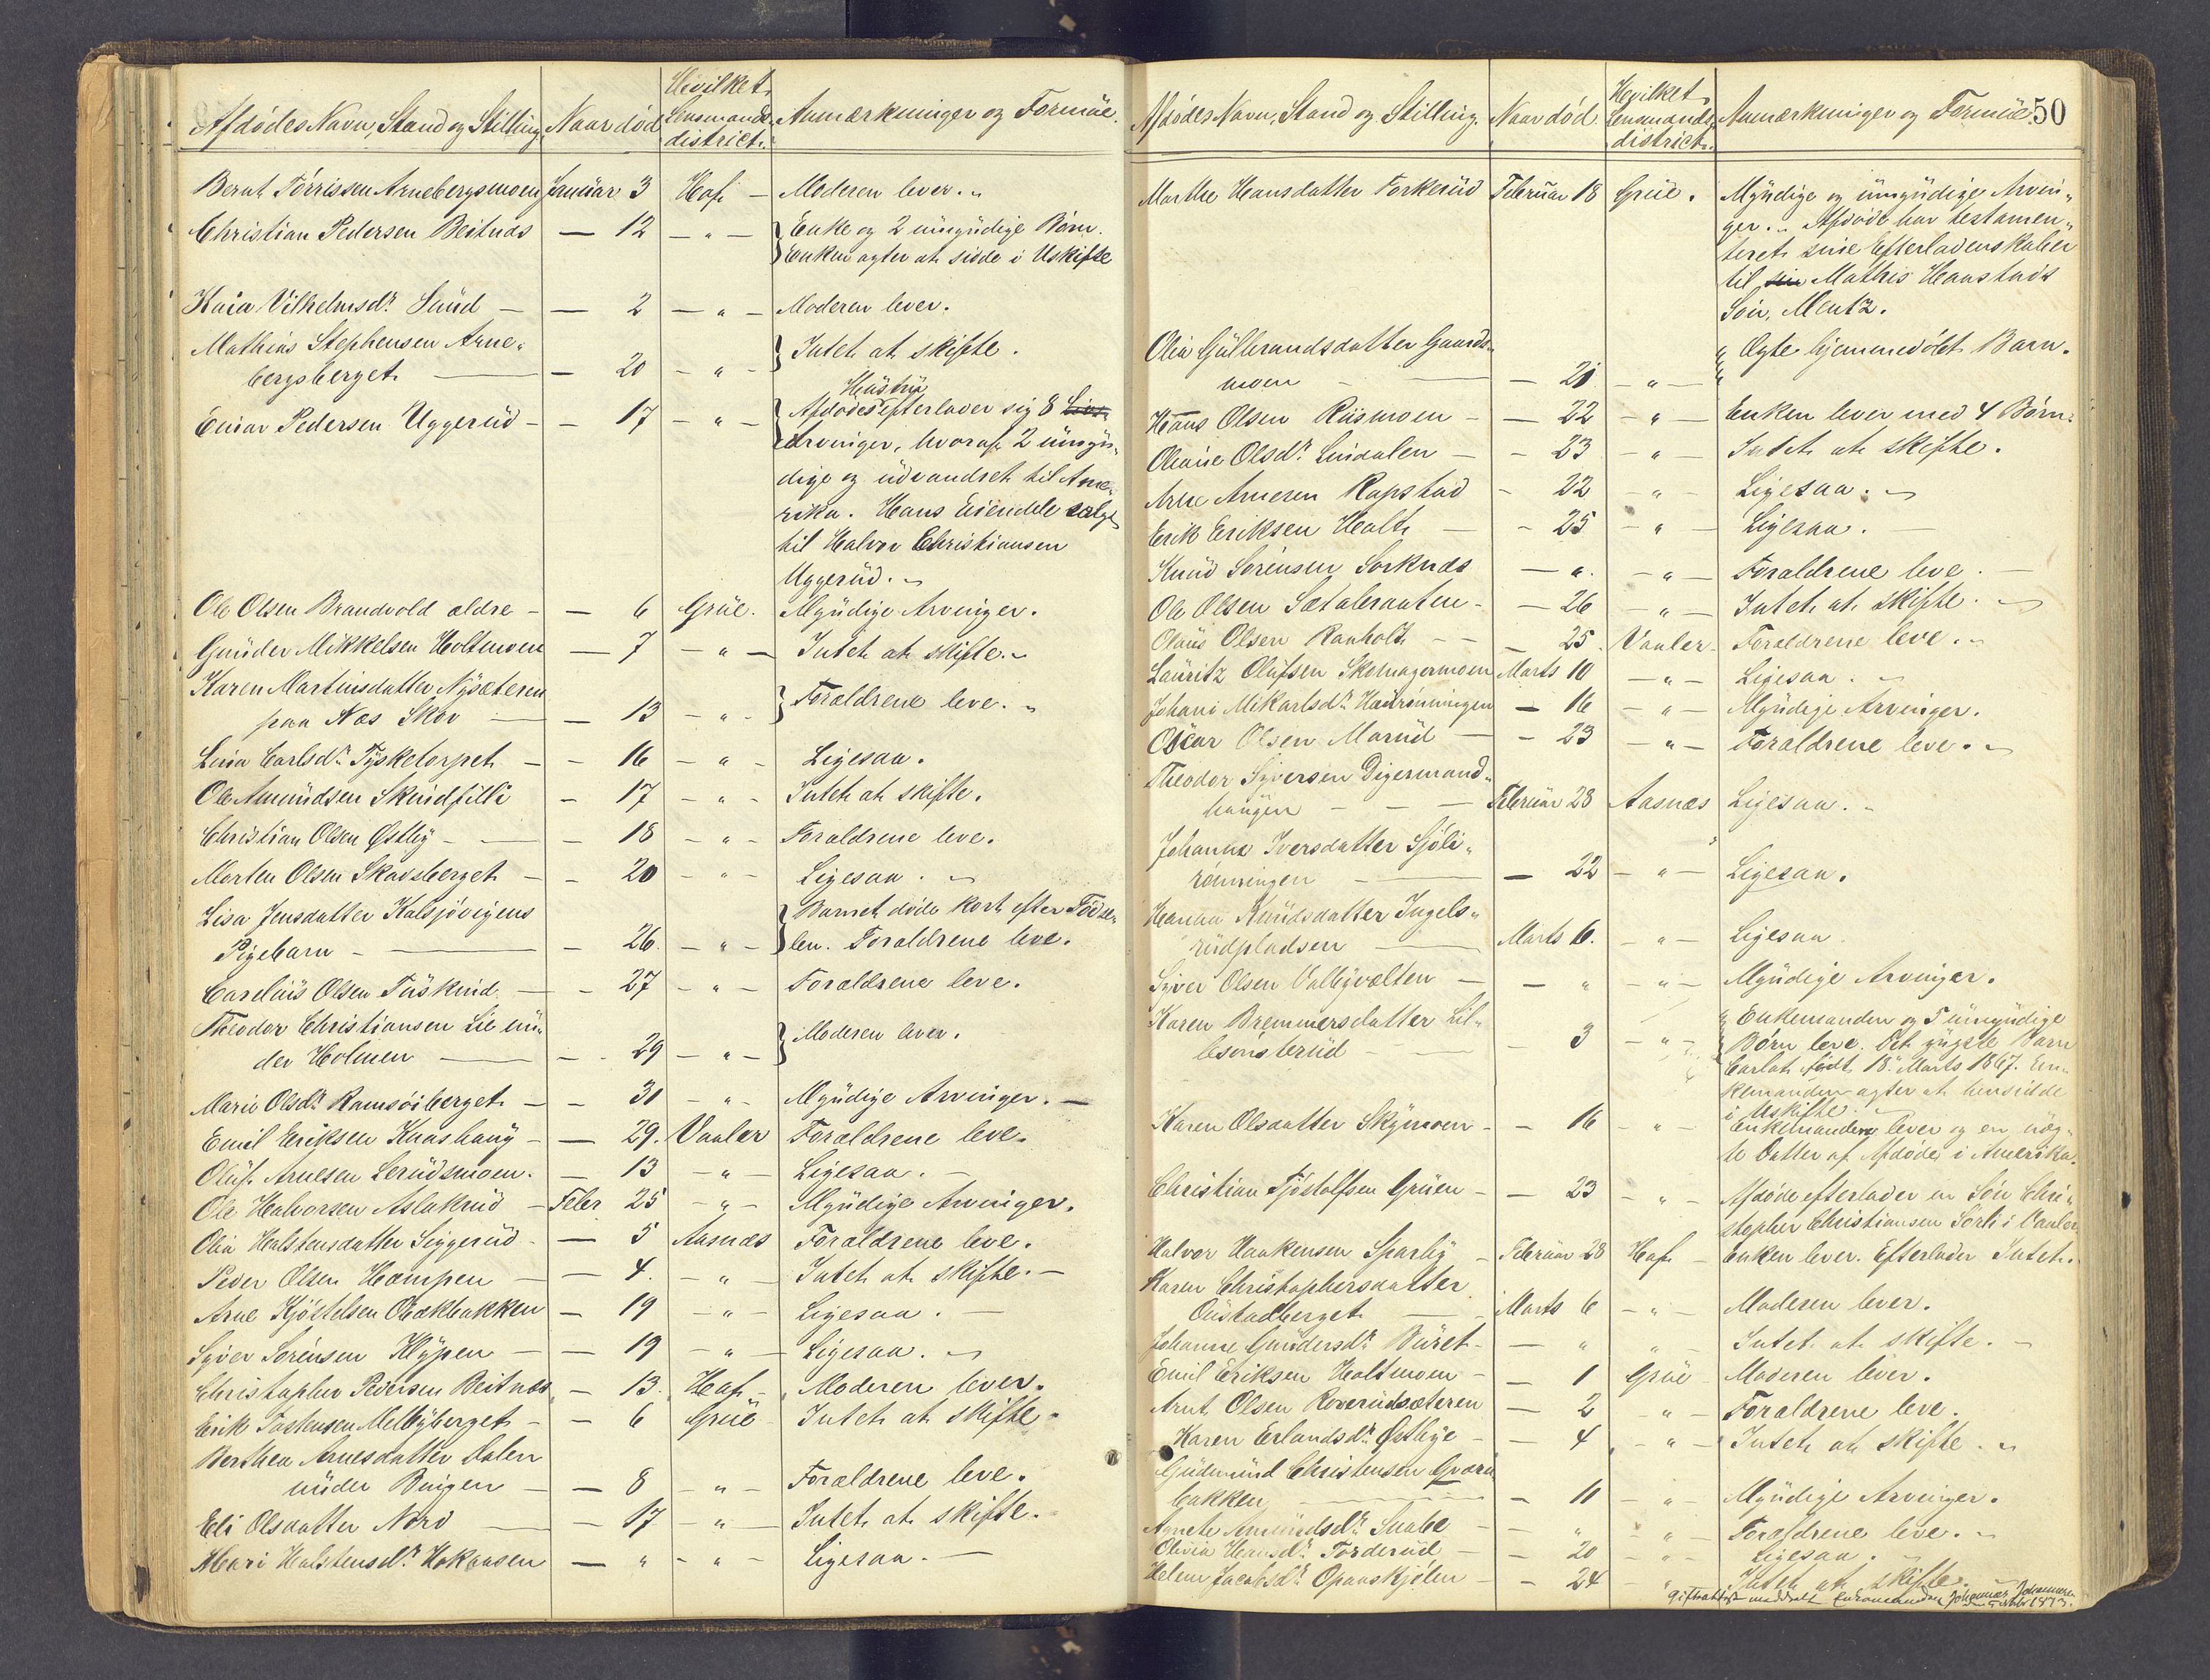 Afdødes Navn, Stand og Stilling. Naar død Hvilket Lensmands- district. Anmærkninger og Formue.
Bernt Tørrissen Arnebergsmoen Januar 3 Hof — Moderen lever. „
Christian Pedersen Beitnæs — 12 — „ — Enke og 2 umyndige Børn.
Enken agter at sidde i Uskifte
Kaia Vilhelmsdr. Sund — — 2 — „ — Moderen lever.
Mathias Stephensen Arne-
bergsberget — — 20 — „ — Intet at skifte.
Hustru
Einar Pedersen Uggerud — — 17 — „ — Afdødes efterlader sig 8 Livs-
Arvinger, hvoraf 2 umyn„
dige og udvandret til Ame„
rika. Hans Eiendele solgt
til Halvor Christiansen
Uggerud. „
Ole Olsen Brandvold ældre — — 6 Grue. Myndige Arvinger.
Gunder Mikkelsen Holtmoen — 7 — „ — Intet at skifte. „
Karen Martinsdatter Nysæteren
paa Næs Skov — — 13 — „ — Forældrene leve. „
Lina Carlsdr. Tysketorpet — — 16 — „ — Ligesaa.
Ole Amundsen Skindfilli — 17 — „ — Intet at skifte.
Christian Olsen Østby — — — 18 — „ — Forældrene leve.
Morten Olsen Skavsberget — — 20 — „ — Ligesaa. „
Lisa Jensdatter Kalsjøvigens Barnet døde kort efter Fødse„
Pigebarn — — 26. — „ — len. Forældrene leve.
Carelius Olsen Tuskind — — 27 — „ — Forældrene leve.
Theodor Christiansen Lie un„
der Holmen — — 29 — „ — Moderen lever.
Marie Olsdr. Ramsøiberget — — 31 — „ — Myndige Arvinger. —
Emil Eriksen Knashaug — — 29. Vaaler Forældrene leve.
Oluf Arnesen Lerudsmoen. — 13 — „ — Ligesaa. —
Ole Halvorsen Aslakrud — Febr 25 — „ — Myndige Arvinger.
Olia Halstensdatter Siggerud — — 5 Aasnæs Forældrene leve.
Peder Olsen Hæmpen — — 4. — „ — Intet at skifte. —
Arne Kjøstelsen Bækbakken — 19 — „ — Ligesaa. —
Syver Sørensen Klypen — — 19 — „ — Ligesaa. „
Christopher Pedersen Beitnæs — 13. Hof — Moderen lever.
Erik Tostensen Melbyberget — — 6 Grue Intet at skifte.
Berthea Arnesdatter Dalen
under Bingen — — 8 — „ — Forældrene leve.
Eli Olsdatter Nord — — 17 — „ — Intet at skifte.
Mari Halstensdr. Hokaasen — „ — „ — Ligesaa. —
Afdødes Navn, Stand og Stilling. Naar død Hvilket Lensmands- district. Anmærkninger og Formue. 50
Marthe Hansdatter Torkerud Februar 18 Grue. Myndige og umyndige Arvin„
ger. „ Afdøde har testamen„
teret sine Efterladenskaber
til sin Mathis Haanstads
Søn, Mentz.
Olia Gulbrandsdatter Gaards„
moen — — 21 — „ — Ægte hjemmedøbt Barn.
Hans Olsen Riismoen — — 22 — „ — Enken lever med 4 Børn.
Oleane Olsdr. Lindalen — — 23 — „ — Intet at skifte.
Arne Arnesen Kapstad — 22 — „ — Ligesaa. „
Erik Eriksen Holt — — 25 — „ — Ligesaa.
Knud Sørensen Sorknæs — „ — „ — Forældrene leve. —
Ole Olsen Sætaleraaten — — 26 — „ — Intet at skifte. „
Olaus Olsen Ranholt — — — 25. Vaaler — Forældrene leve. „
Lauritz Olufsen Skomagermoen Marts 10 — „ — Ligesaa. „
Johani Mikarlsdr. Haurønningen — 16 — „ — Myndige Arvinger.
Oscar Olsen Marud — — 23 — „ — Forældrene leve. „
Theodor Syversen Digermand„
haugen — — — Februar 28 Aasnæs Ligesaa. „
Johanna Iversdatter Sjøli„
rønningen — — 22 — „ — Ligesaa.
Hanna Knudsdatter Ingels„
rudpladsen — Marts 6. — „ — Ligesaa
Syver Olsen Valbyvolten — — „ — „ — Myndige Arvinger.
Karen Bremmersdatter Lil„ Enkemanden og 5 umyndige
lesønsterud — — 3 — „ — Børn leve. Det yngste Barn
Carlot, født 18. Marts 1867. En„
kemanden agter at hensidde
i Uskifte.
Karen Olsdatter Skymoen — — 16 — „ — Enkemanden lever og en uæg„
te Datter af Afdøde i Amerika.
Christian Tjøstolfsen Gruen — — 23 — „ — Afdøde efterlader en Søn Chri„
stopher Christiansen Sorli i Vaaler
Halvor Haakensen Sparby — Februar 28 Hof — Enken lever. Efterlader Intet.
Karen Christophersdatter
Oustadberget — — Marts 6 — „ — Moderen lever.
Johanne Gundersdr. Buret — — „ „ — Intet at skifte. —
Emil Eriksen Holtmoen — — 1 Grue Moderen lever.
Arnt Olsen Roverudsæteren — 2 — „ — Forældrene leve.
Karen Erlandsdr. Østbye — — 4 — „ — Intet at skifte. „
Gudmund Christensen Qværn
bakken — — 11 — „ Myndige Arvinger.
Agnete Amundsdr. Snabe — — „ — „ — Forældrene leve. „
Olivia Hansdr. Torderud — — 20 — „ — Ligesaa.
Helene Jacobsdr. Opaaskjølen — — 24 — „ Intet at skifte.
meddelt Enkemanden Johannes Johannesen